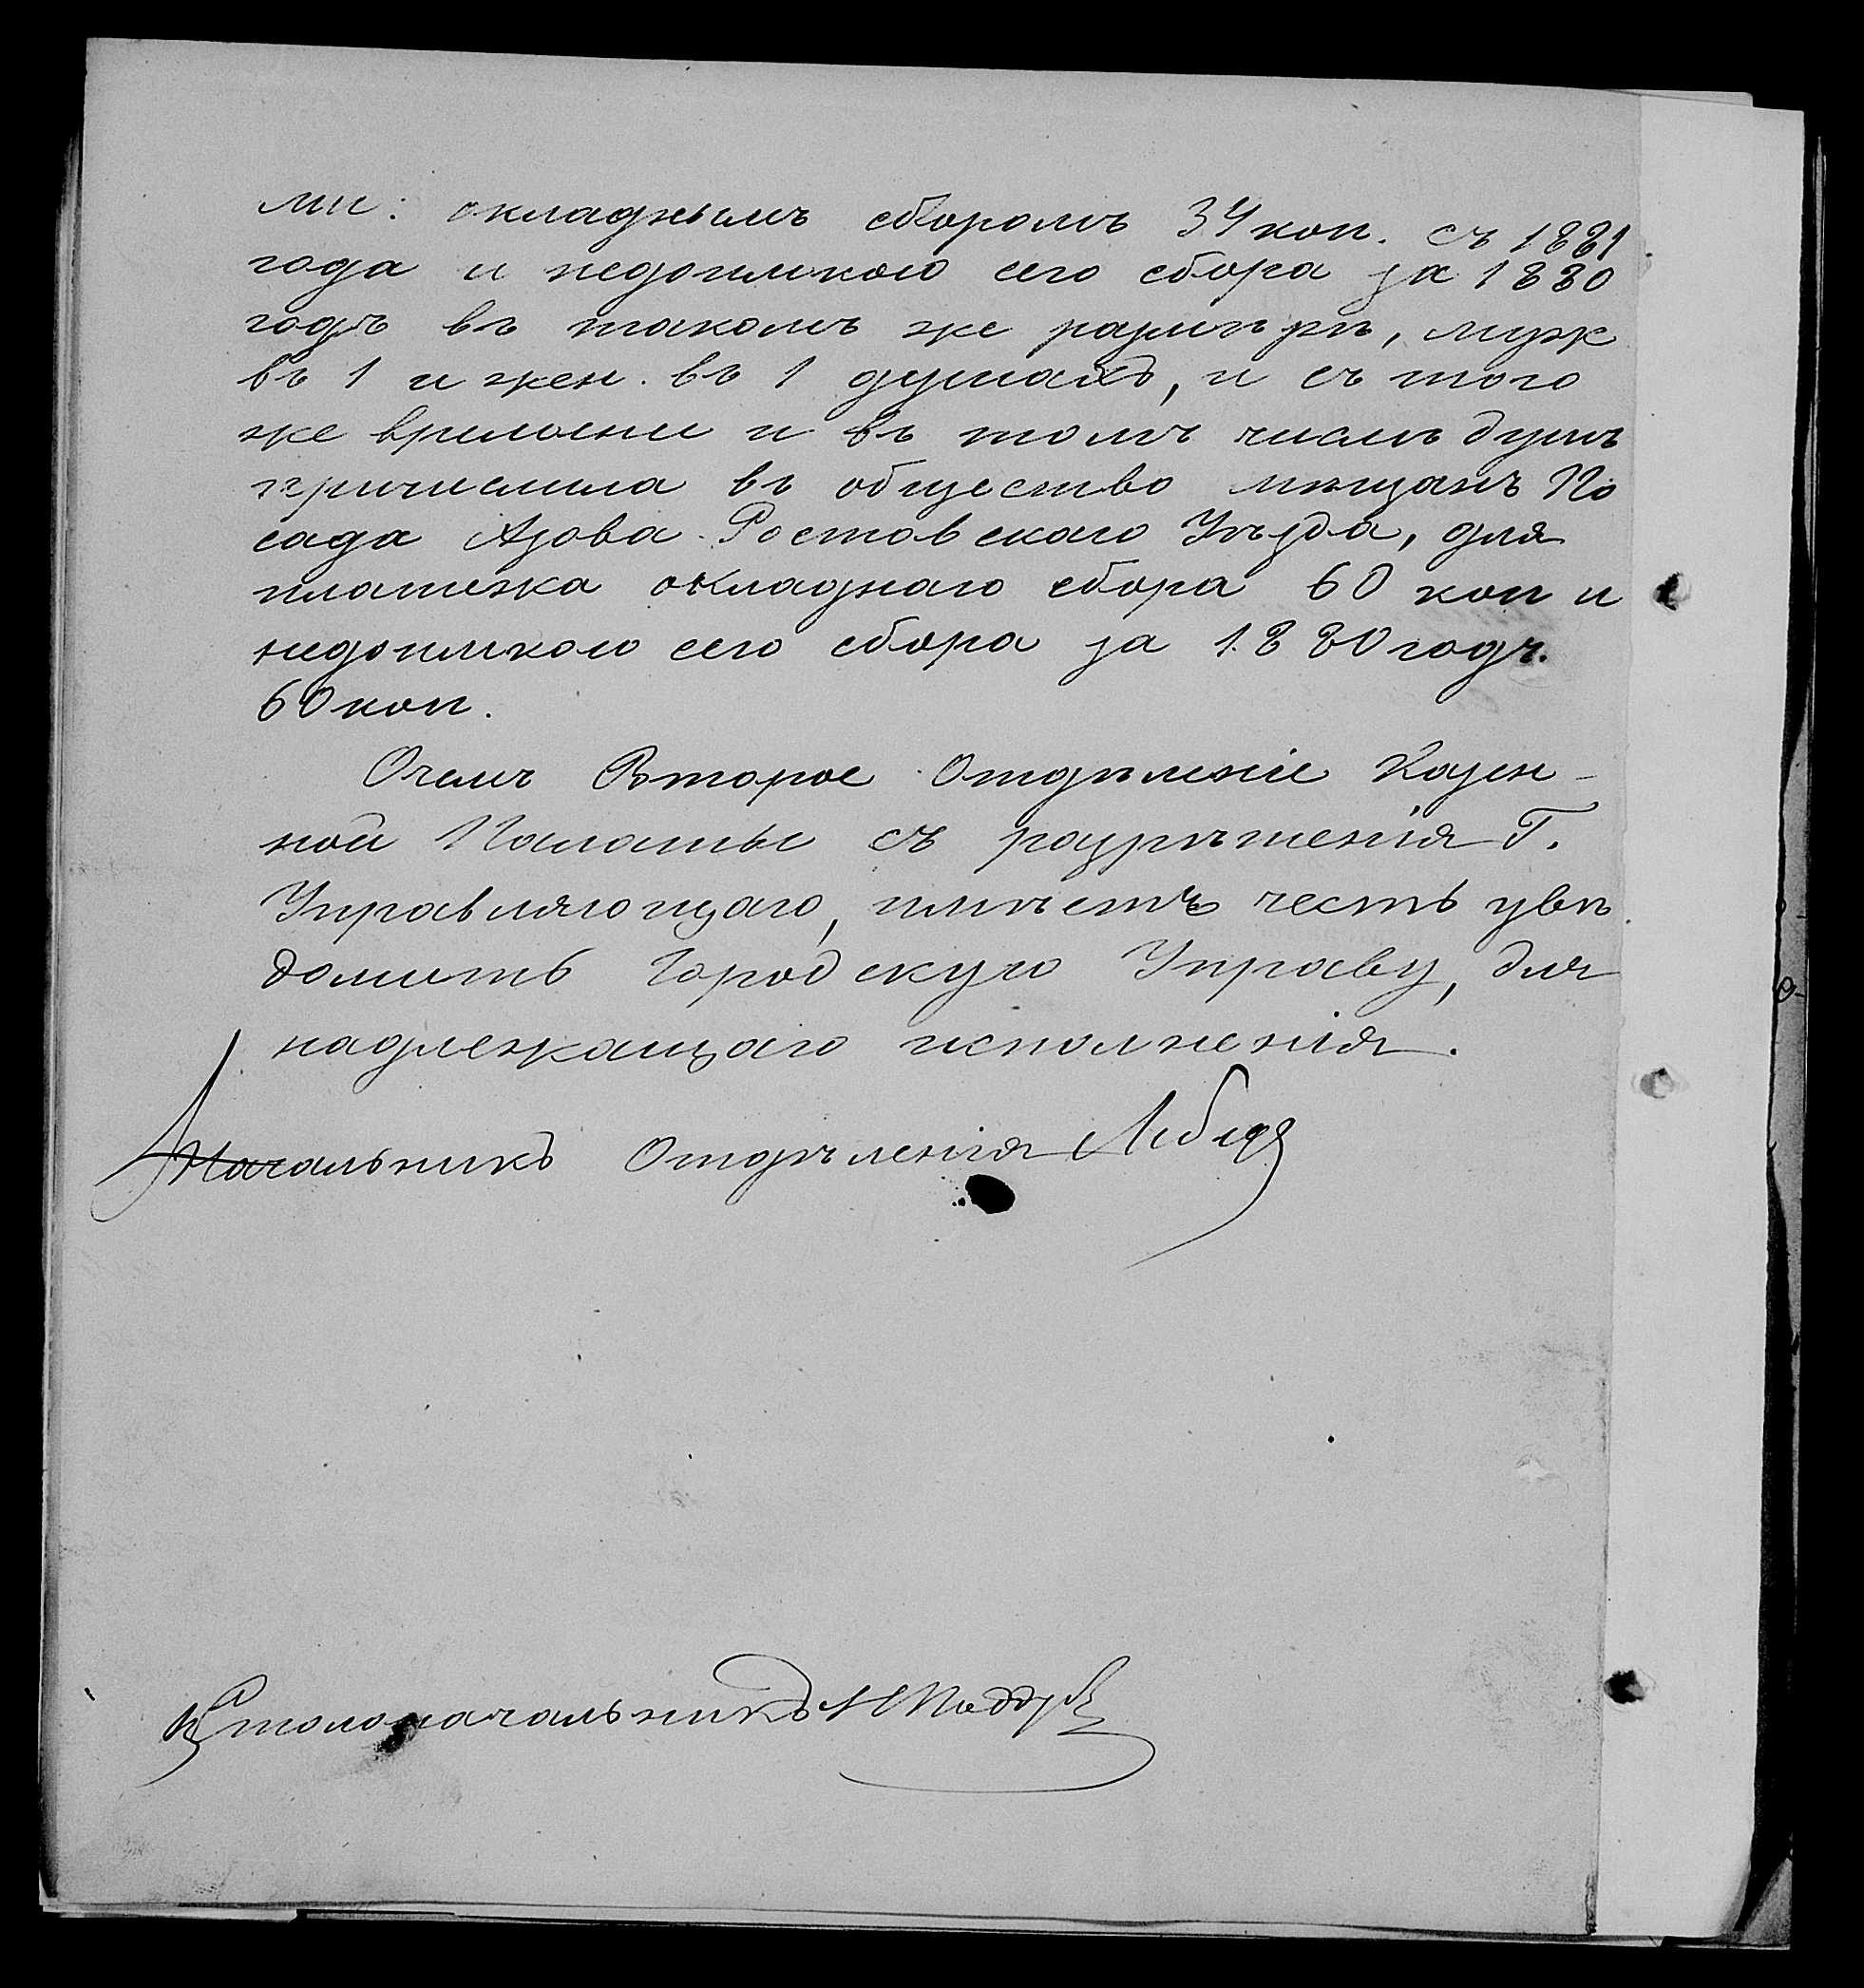 ми: окладнымъ сборомъ 34 коп. съ 1881
года и недоимкою сего сбора за 1880
годъ въ такомъ же размѣрѣ, муж
въ 1 и жен. въ 1 душахъ, и съ того
же времени и въ томъ числѣ душъ
причислила въ общество мѣщанъ По
сада Азова Ростовскаго Уѣзда, для
платежа окладнаго сбора 60 коп и
недоимкою сего сбора за 1880 годъ.
60 коп.
О чемъ Второе Отдѣленіе Казен-
ной Палаты съ разрѣшенія Г.
Управляющаго, имѣетъ честь увѣ
домить Городскую Управу, для
надлежащаго исполненія.
Начальникъ Отдѣленія
Столоначальникъ